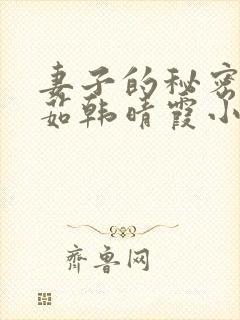 妻子的秘密
茹韩晴霞小
齐鲁网